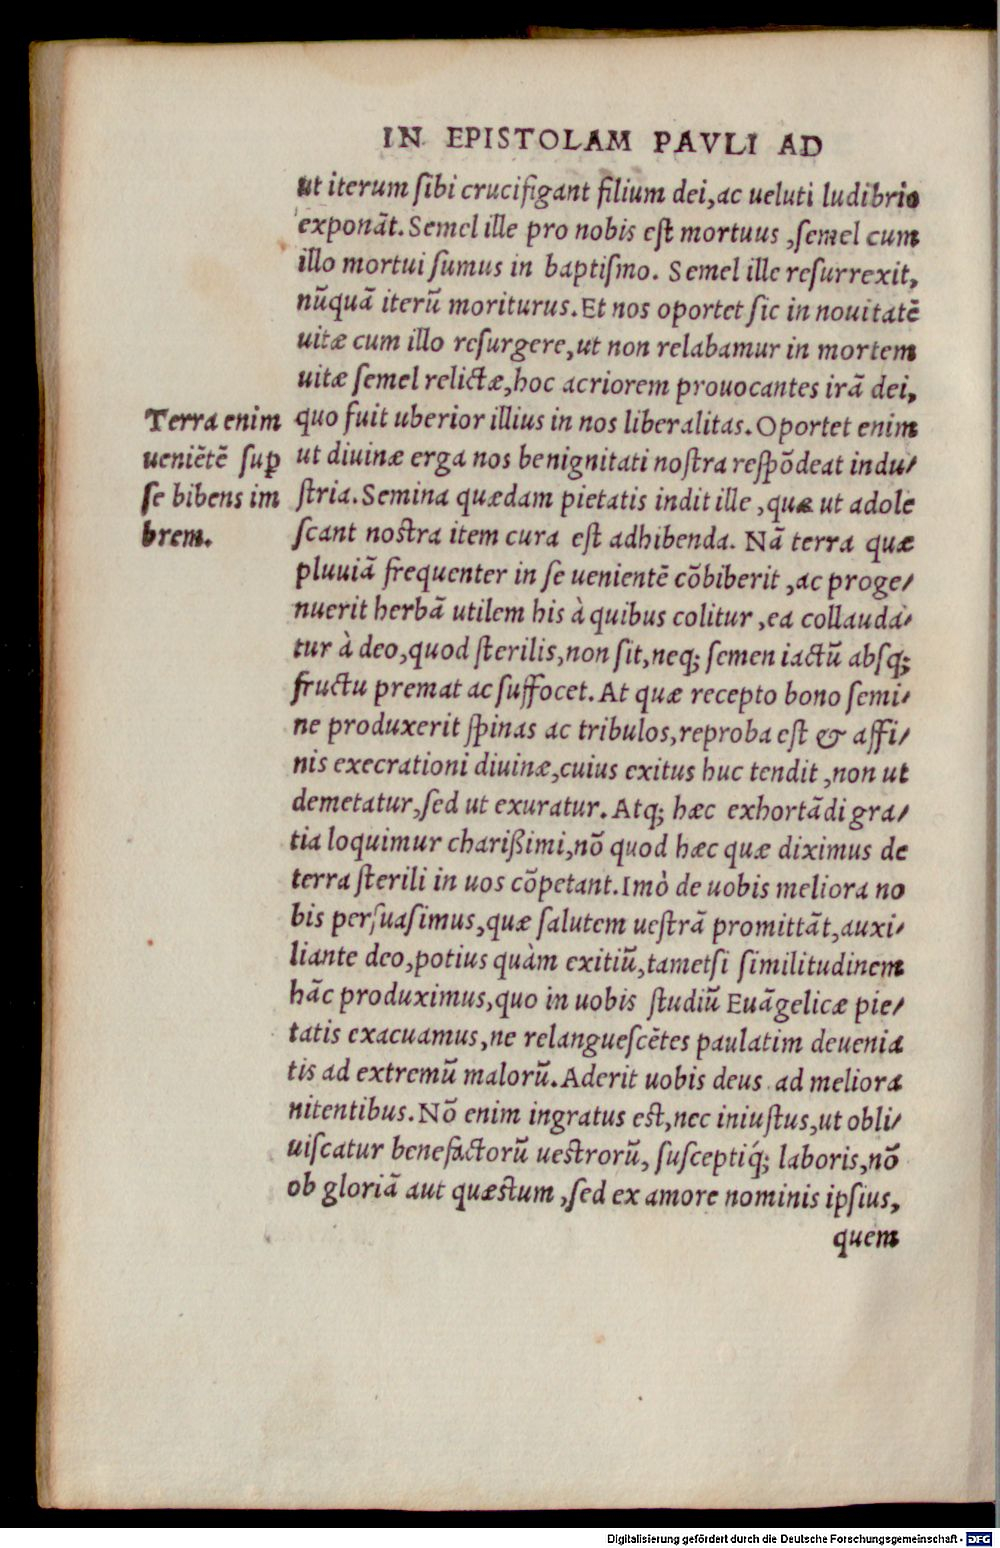 IN EPISTOLAM PAVLI AD
ut iterum ſibi crucifigant filium dei,ac ueluti ludibrio
exponāt. Semel ille pro nobis eſt mortuus ,ſemel cum
illo mortui ſumus in baptiſmo. Semel ille reſurrexit,
nūquā iterū moriturus. Et nos oportet ſic in nouitatē
uitæ cum illo reſurgere,ut non relabamur in mortem
uitæ ſemel relictæ,hoc acriorem prouocantes irā dei,
quo fuit uberior illius in nos liberalitas. Oportet enim
ut diuinæ erga nos benignitati noſtra reſpōdeat indu/
ſtria. Semina quædam pietatis indit ille ,quæ ut adole
ſcant noſtra item cura eſt adhibenda. Nā terra quæ
pluuiā frequenter in ſe uenientē cōbiberit ,ac proge/
nuerit herbā utilem his à quibus colitur ,ea collauda/
tur à deo,quod ſterilis,non ſit,neq; ſemen iactū abſq;
fructu premat ac ſuffocet. At quæ recepto bono ſemi/
ne produxerit ſpinas ac tribulos,reproba eſt & affi/
nis execrationi diuinæ,cuius exitus huc tendit ,non ut
demetatur,ſed ut exuratur. Atq; hæc exhortādi gra/
tia loquimur charißimi,nō quod hæc quæ diximus de
terra ſterili in uos cōpetant. Imò de uobis meliora no
bis perſuaſimus,quæ ſalutem ueſtrā promittāt,auxi/
liante deo,potius quàm exitiū,tametſi ſimilitudinem
hāc produximus,quo in uobis ſtudiū Euāgelicæ pie/
tatis exacuamus,ne relangueſcētes paulatim deuenia
tis ad extremū malorū. Aderit uobis deus ad meliora
nitentibus. Nō enim ingratus eſt,nec iniuſtus,ut obli/
uiſcatur benefactorū ueſtrorū, ſuſceptiq́; laboris,nō
ob gloriā aut quæſtum ,ſed ex amore nominis ipſius,
quem
Terra enim
ueniētē ſuꝑ
ſe bibens im
brem.
Digitalisierung gefördert durch die Deutsche Forschungsgemeinschaft - DFG